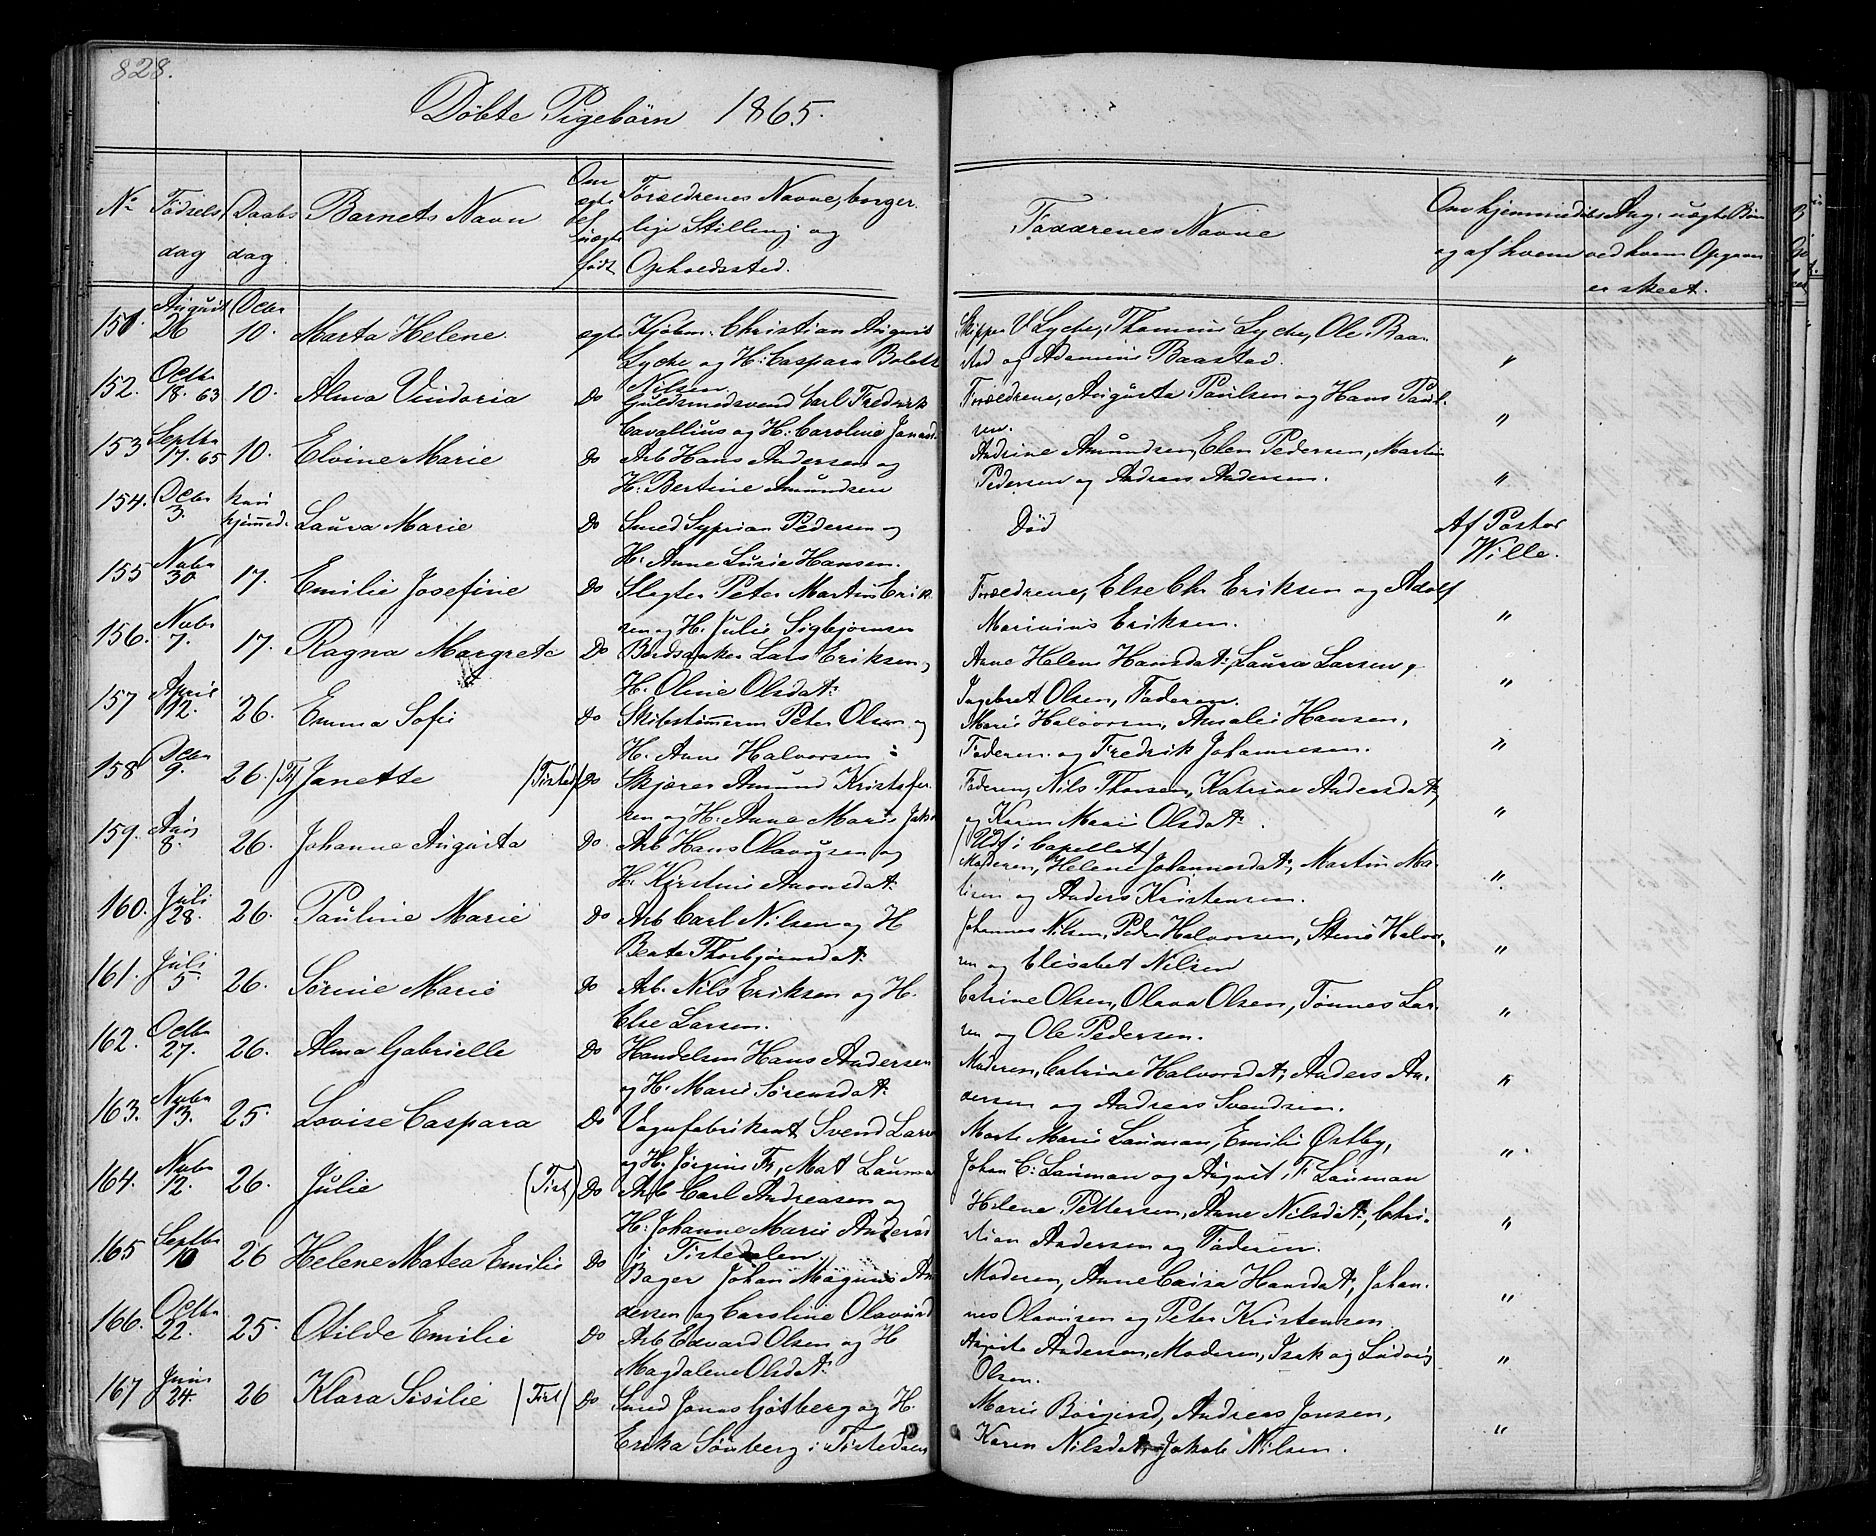 828.
Döbte Pigebörn 1865.
No Födsels dag Daabs dag. Barnets Navn Om ægte el uægte födt Forældrenes Navne, borger-lige Stilling og Opholdssted. Faddrenes Navne Om hjemmedöbt og af hvem ved hvem er skeet.
151. August 26 Octbr 10. Marta Helene. ægte Kjöbm. Christian August Skipper V Lyche, Thomine Lyche, Ole Baa-
Lyche og H: Caspara Bolett Nilsen. stad og Baastad. "
152. Octbr 18. 63 10. Alma Vindoria Do Guldsmedsvend Carl Fredrik Forældrene, Augusta Paulsen og Hans Paul-
Cavallius og H: Caroline sen. "
153 Septbr 17. 65 10. Elvine Marie Do Arb Hans Andersen og Andrine Amundsen, Elen Pedersen, Martin
H: Bertine Amundsen Pedersen og Andreas Andersen. "
154. Octbr 3. kun hjemmed. Laura Marie Do Smed Syprian Pedersen og Död Af Pastor
H: Anne Lusie Hansen. Wille.
155 Nvbr 30 17. Emilie Josefine Do Slagter Peter Martin Erik- Forældrene, Else Chr Eriksen og Adolf
sen og H. Julie Sigbjörnsen Marinius Eriksen. "
156. Nvbr 7. 17. Ragna Margrete Do Lars Eriksen, Anne Helene Hansdat: Laura Larsen,
H. Oline Olsdat: Ingebret Olsen, Faderen. "
157 April 12. 26. Emma Sofie Do Skibstömerm Peter Olsen og Marie Halvorsen, Amalie Hansen,
H. Anne Halvorsen Faderen og Fredrik Johannesen. "
158 Octbr 9. 26. Janette (Tistd) Do Skjærer Amund Kristofer- Faderen, Nils Thorsen, Katrine Andersdat:
sen og H. Anne Marie og Karen Marie Olsdat: "
159. Aug 8. 26. Johanne Augusta Do. Arb Hans Olavusen og (Udf i Capellet) Moderen, Helene Johannesdat: Martin Ma-
H. Kirstine Aarnesdat: og Anders Kristensen. "
160. Juli 28. 26. Pauline Marie Do Arb Carl Nilsen og H Johannes Nilsen, Peder Halvorsen, Stine Halvor-
Beate Thorbjörnsdat: sen og Elisabet Nilsen "
161. Juli 5. 26. Sörine Marie Do Arb. Nils Eriksen og H. Catrine Olsen, Olava Olsen, Tönnes Lar-
Else Larsen. sen og Ole Pedersen. "
162. Octbr 27. 26. Alma Gabrielle Do Handelsm Hans Andersen Moderen, Catrine Halvorsdat, Anders An-
og H. Marie Sörensdat: dersen og Andreas Svendsen. "
163. Nvbr 13. 25. Lovise Caspara Do Vognfabrikant Svend Marte Marie Lauman, Emilie Östby,
og H. Jörgine Fr. Mat Lauman Johan C: Lauman og August F Lauman "
164. Nvbr 12. 26. Julie (Tist) Do Arb Carl Andreasen og Helene Pettersen, Anne Nilsdat: Chri-
H. Johanne Marie Andersd i Tistedalen. stian Andersen og Faderen. "
165 Septbr 10 26 Helene Matea Emilie Do Bager Johan Magnus An- Moderen, Anne Caisa Hansdat, Johan-
dersen og Caroline Olavusd nes Olavusen og Peter Kristensen "
166. Octbr 22. 25. Otilde Emilie Do Arb Edvard Olsen og H Augusta Andersen, Moderen, Isak og Ludvig
Magdalene Olsdat: Olsen. "
167 Juni 24. 26 Klara Sisilie (Tist) Do Smed Jonas Götberg og H. Marie Börgersd, Andreas Jonsen,
Erika Sönberg i Tistedalen Karen Nilsdat, Jakob Nilsen. "